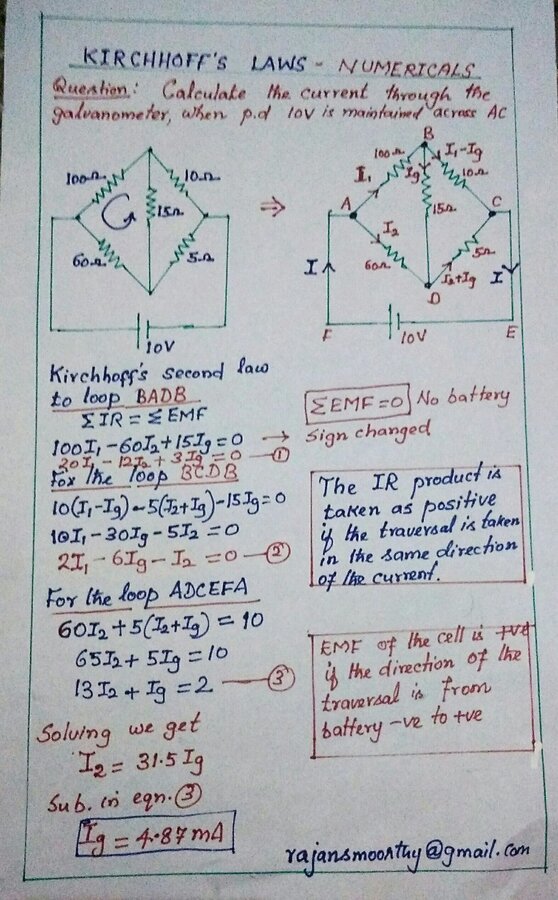 KIRCHHOFF'S LAWS - NUMERICALS
Question: Calculate the current through the
galvanometer, when p.d 10V is maintained across AC
100Ω
10Ω
15Ω
60Ω
5Ω
10V
⇒
B
100Ω
I₁
Ig
I₁-Ig
10Ω
A
15Ω
C
I₂
60Ω
5Ω
I
I₂+Ig
I
D
F
10V
E
Kirchhoff's second law
to loop BADB
ΣIR = ΣEMF
100I₁ - 60I₂ + 15Ig = 0 →
20I₁ - 12I₂ + 3Ig = 0 — ①
ΣEMF = 0 No battery
Sign changed
For the loop BCDB
10(I₁-Ig) - 5(I₂+Ig) - 15Ig = 0
10I₁ - 30Ig - 5I₂ = 0
2I₁ - 6Ig - I₂ = 0 — ②
The IR product is
taken as positive
if the traversal is taken
in the same direction
of the current.
For the loop ADCEFA
60I₂ + 5(I₂+Ig) = 10
65I₂ + 5Ig = 10
13I₂ + Ig = 2 — ③
EMF of the cell is +ve
if the direction of the
traversal is from
battery -ve to +ve
Solving we get
I₂ = 31.5 Ig
Sub. in eqn. ③
Ig = 4.87 mA
rajansmoorthy@gmail.com